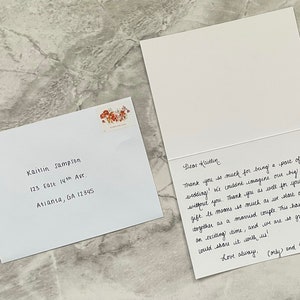 Kaitlin Sampson
123 East 14th Ave.
Atlanta, GA 12345
Dear Kaitlin,
Thank you so much for being a part of
wedding! We couldn't imagine our big
without you. Thank you as well for your
gift. It means so much as we start our
together as a married couple. This has
an exciting time, and we are so gl
could share it with us!
Love always,
and